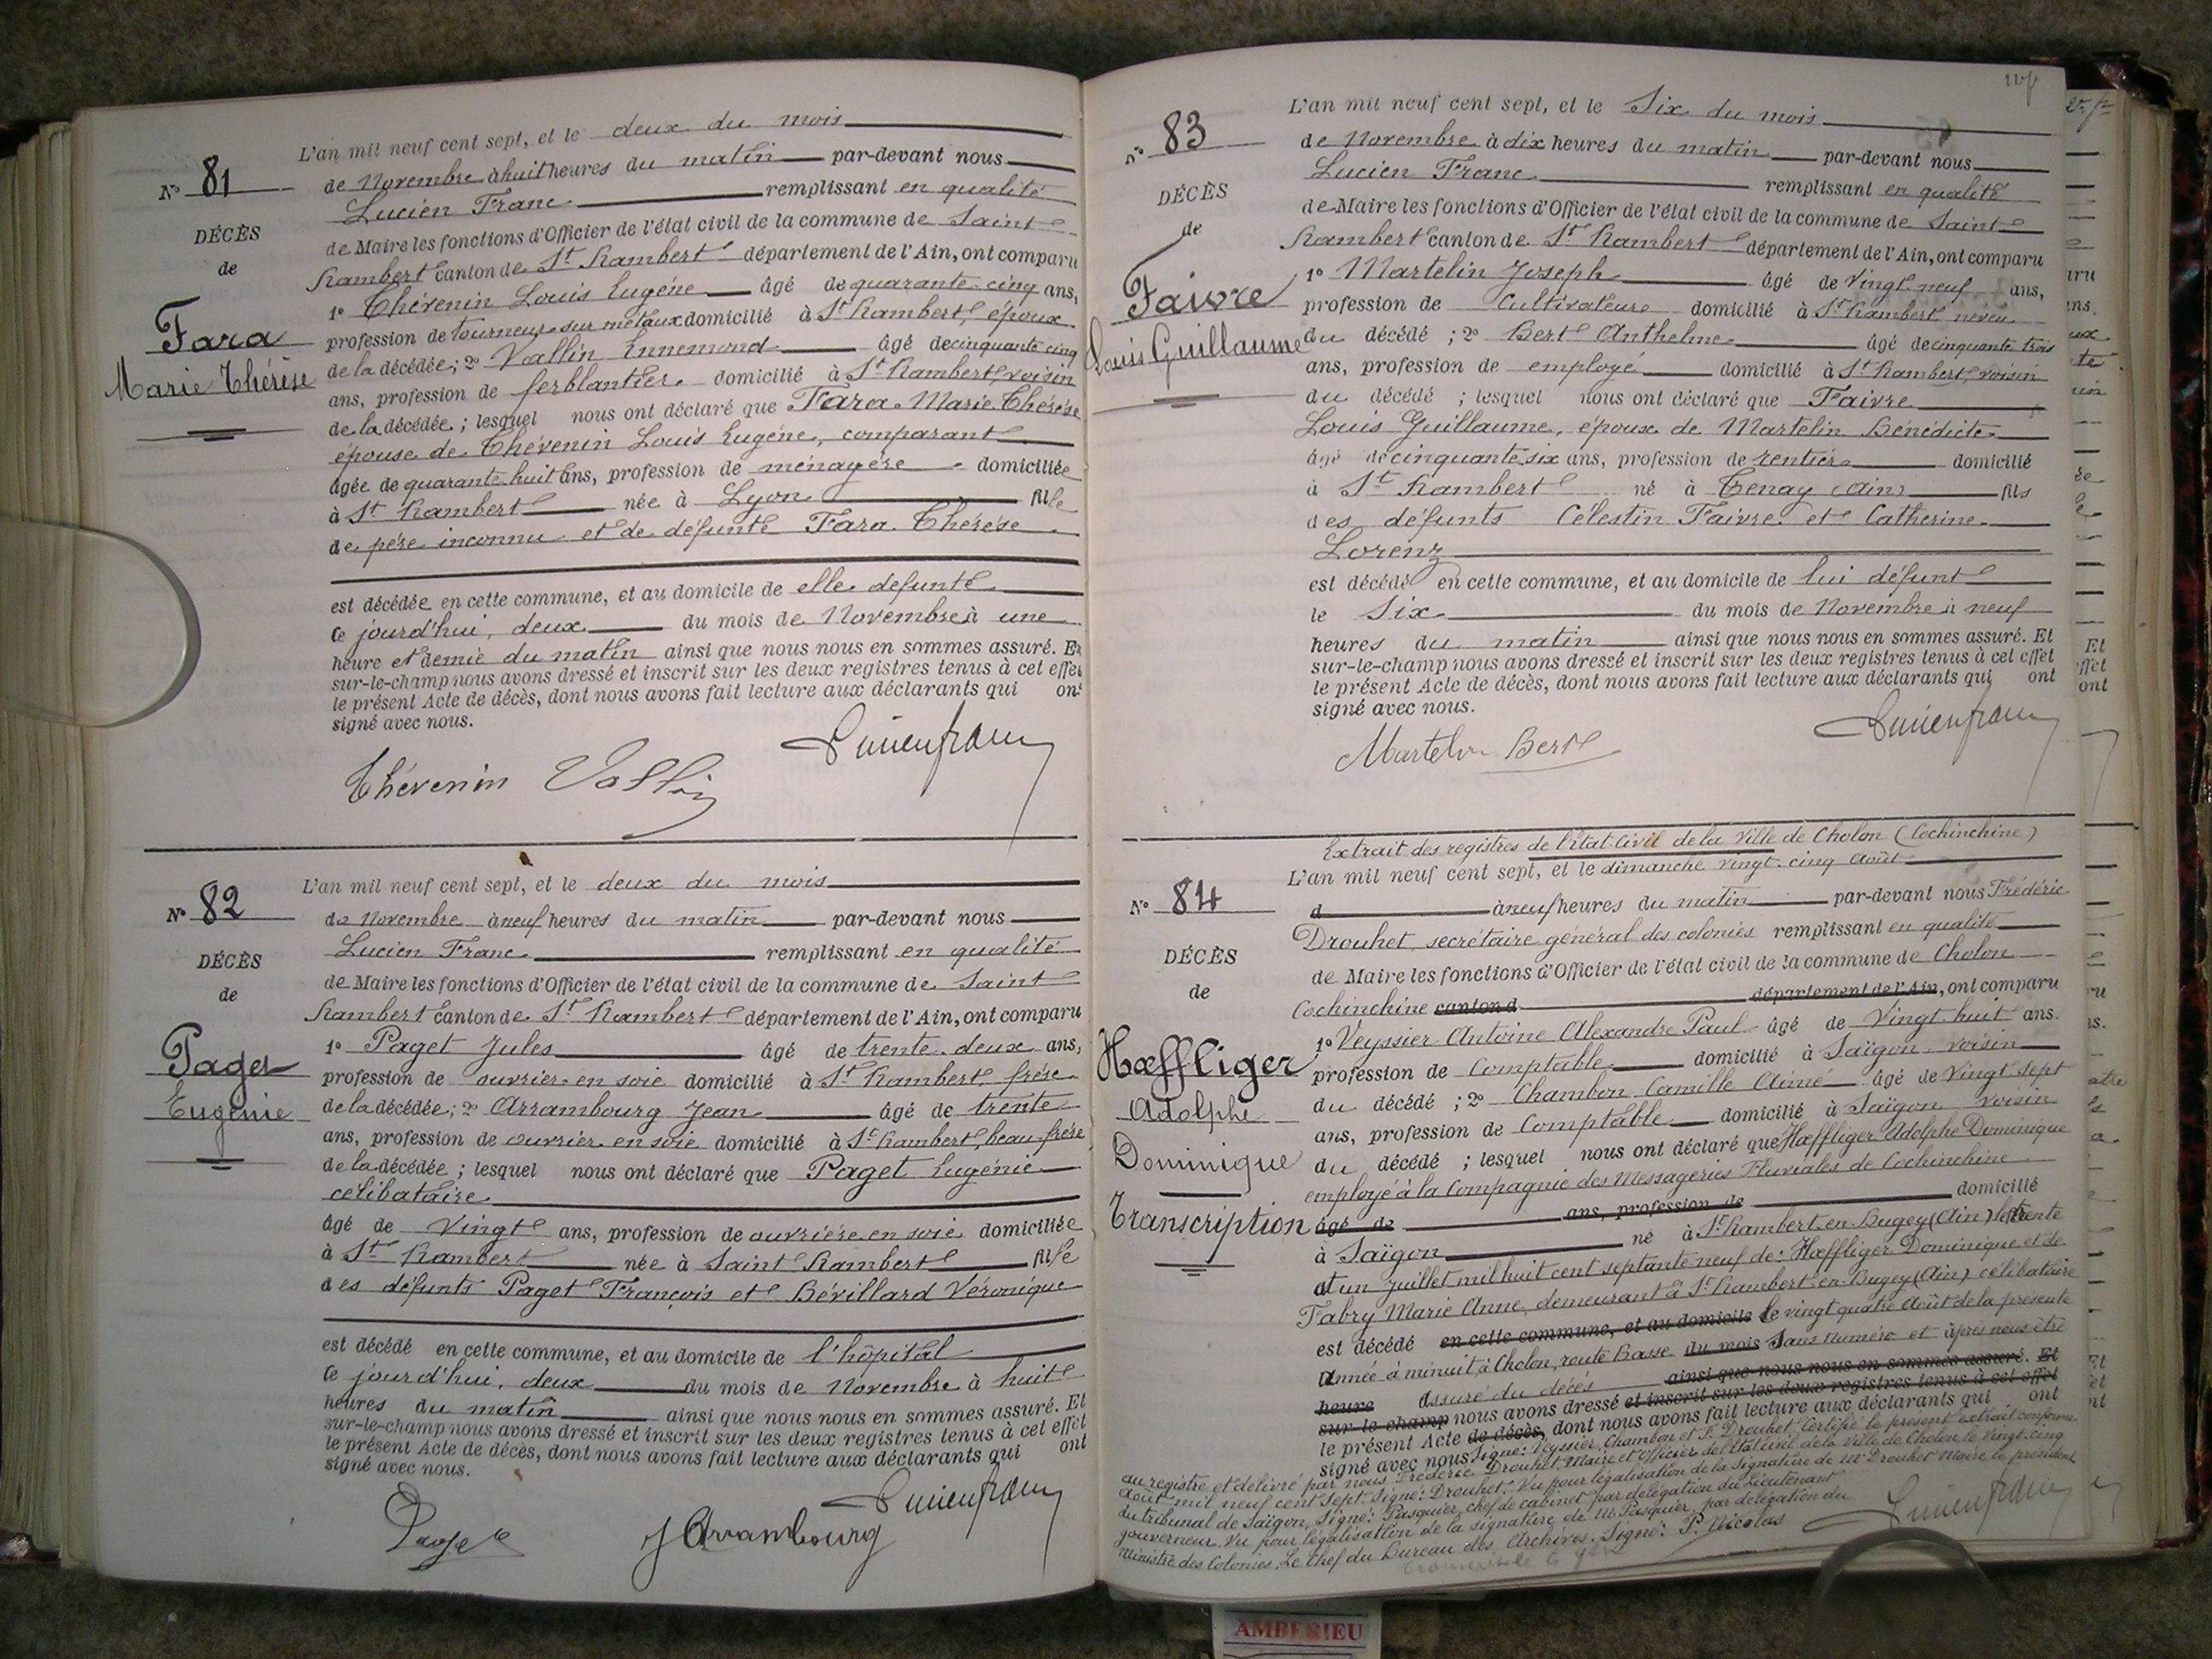 N° 81
DÉCÈS
de
Fara
Marie Thérèse
L'an mil neuf cent sept, et le deux du mois
de Novembre à huit heures du matin par-devant nous
Lucien Franc remplissant en qualité
de Maire les fonctions d'Officier de l'état civil de la commune de Saint
Rambert canton de St Rambert département de l'Ain, ont comparu
1° Thévenin Louis Eugéne âgé de quarante-cinq ans,
profession de tourneur sur métaux domicilié à St Rambert, époux
de la décédée; 2° Vallin Ennemond âgé de cinquante cinq
ans, profession de ferblantier domicilié à St Rambert, voisin
de la décédée; lesquel nous ont déclaré que Fara Marie Thérèse
épouse de Thévenin Louis Eugéne, comparant
âgée de quarante huit ans, profession de ménagère domiciliée
à St Rambert née à Lyon fille
de père inconnu et de défunte Fara Thérèse
est décédée en cette commune, et au domicile de elle defunte
ce jourd'hui, deux du mois de Novembre à une
heure et demie du matin ainsi que nous nous en sommes assuré. Et
sur-le-champ nous avons dressé et inscrit sur les deux registres tenus à cet effet
le présent Acte de décès, dont nous avons fait lecture aux déclarants qui ont
signé avec nous.
Lucien franc
Thévenin Vallin
N° 82
DÉCÈS
de
Paget
Eugénie
L'an mil neuf cent sept, et le deux du mois
de Novembre à neuf heures du matin par-devant nous
Lucien Franc remplissant en qualité
de Maire les fonctions d'Officier de l'état civil de la commune de Saint
Rambert canton de St Rambert département de l'Ain, ont comparu
1° Paget Jules âgé de trente-deux ans,
profession de ouvrier en soie domicilié à St Rambert, frère
de la décédée; 2° Arrambourg Jean âgé de trente
ans, profession de ouvrier en soie domicilié à St Rambert, beau-frère
de la décédée; lesquel nous ont déclaré que Paget Eugénie
célibataire
âgé de Vingt ans, profession de ouvrière en soie domiciliée
à St Rambert née à Saint Rambert fille
des défunts Paget François et Bévillard Véronique
est décédé en cette commune, et au domicile de l'hôpital
ce jourd'hui, deux du mois de Novembre à huit
heures du matin ainsi que nous nous en sommes assuré. Et
sur-le-champ nous avons dressé et inscrit sur les deux registres tenus à cet effet
le présent Acte de décès, dont nous avons fait lecture aux déclarants qui ont
signé avec nous.
Lucien franc
Paget J Arrambourg
N° 83
DÉCÈS
de
Faivre
Louis Guillaume
L'an mil neuf cent sept, et le Six du mois
de Novembre à dix heures du matin par-devant nous
Lucien Franc remplissant en qualité
de Maire les fonctions d'Officier de l'état civil de la commune de Saint
Rambert canton de St Rambert département de l'Ain, ont comparu
1° Martelin Joseph âgé de Vingt neuf ans,
profession de Cultivateur domicilié à St Rambert, neveu
du décédé; 2° Bert Anthelme âgé de cinquante trois
ans, profession de employé domicilié à St Rambert, voisin
du décédé; lesquel nous ont déclaré que Faivre
Louis Guillaume, époux de Martelin Bénédicte
âgé de cinquante six ans, profession de rentier domicilié
à St Rambert né à Tenay (Ain) fils
des défunts Célestin Faivre et Catherine
Lorenz
est décédé en cette commune, et au domicile de lui défunt
le Six du mois de Novembre à neuf
heures du matin ainsi que nous nous en sommes assuré. Et
sur-le-champ nous avons dressé et inscrit sur les deux registres tenus à cet effet
le présent Acte de décès, dont nous avons fait lecture aux déclarants qui ont
signé avec nous.
Lucien franc
Martelin Bert
N° 84
DÉCÈS
de
Hœffliger
Adolphe
Dominique
Transcription
Extrait des registres de l'état civil de la Ville de Cholon (Cochinchine)
L'an mil neuf cent sept, et le dimanche vingt-cinq Août
d à neuf heures du matin par-devant nous Frédéric
Drouhet, secrétaire général des colonies remplissant en qualité
de Maire les fonctions d'Officier de l'état civil de la commune de Cholon
Cochinchine canton d département de l'Ain, ont comparu
1° Veyssier Antoine Alexandre Paul âgé de Vingt-huit ans.
profession de Comptable domicilié à Saïgon voisin
du décédé; 2° Chambon Camille Aimé âgé de Vingt sept
ans, profession de Comptable domicilié à Saïgon voisin
du décédé; lesquel nous ont déclaré que Hœffliger Adolphe Dominique
employé à la Compagnie des Messageries Fluviales de Cochinchine
âgé de ans, profession de domicilié
à Saïgon né à St Rambert-en-Bugey (Ain) le trente
et un Juillet mil huit cent septante neuf de: Hœffliger Dominique et de
Fabry Marie Anne, demeurant à St Rambert-en-Bugey (Ain) célibataire
est décédé en cette commune, et au domicile le vingt quatre Août de la présente
année à minuit à Cholon, route Basse du mois Sans numéro et après nous être
heure assuré du décès ainsi que nous nous en sommes assuré. Et
sur-le-champ nous avons dressé et inscrit sur les deux registres tenus à cet effet
le présent Acte de décès, dont nous avons fait lecture aux déclarants qui ont
signé avec nous Signé: Veyssier, Chambon et F. Drouhet. Certifié le présent extrait conforme
au registre et délivré par nous Frédéric Drouhet, Maire et Officier de l'état civil de la Ville de Cholon, le Vingt-cinq
Août mil neuf cent sept. Signé: Drouhet. Vu pour légalisation de la signature de Mr Drouhet Maire le président
du tribunal de Saïgon, Signé: Pasquier, chef de cabinet par délégation du Lieutenant
gouverneur. Vu pour légalisation de la signature de M. Pasquier, par délégation du
Ministre des Colonies. Le Chef du Bureau des Archives. Signé: P. Nicolas
Lucien franc
AMBERIEU